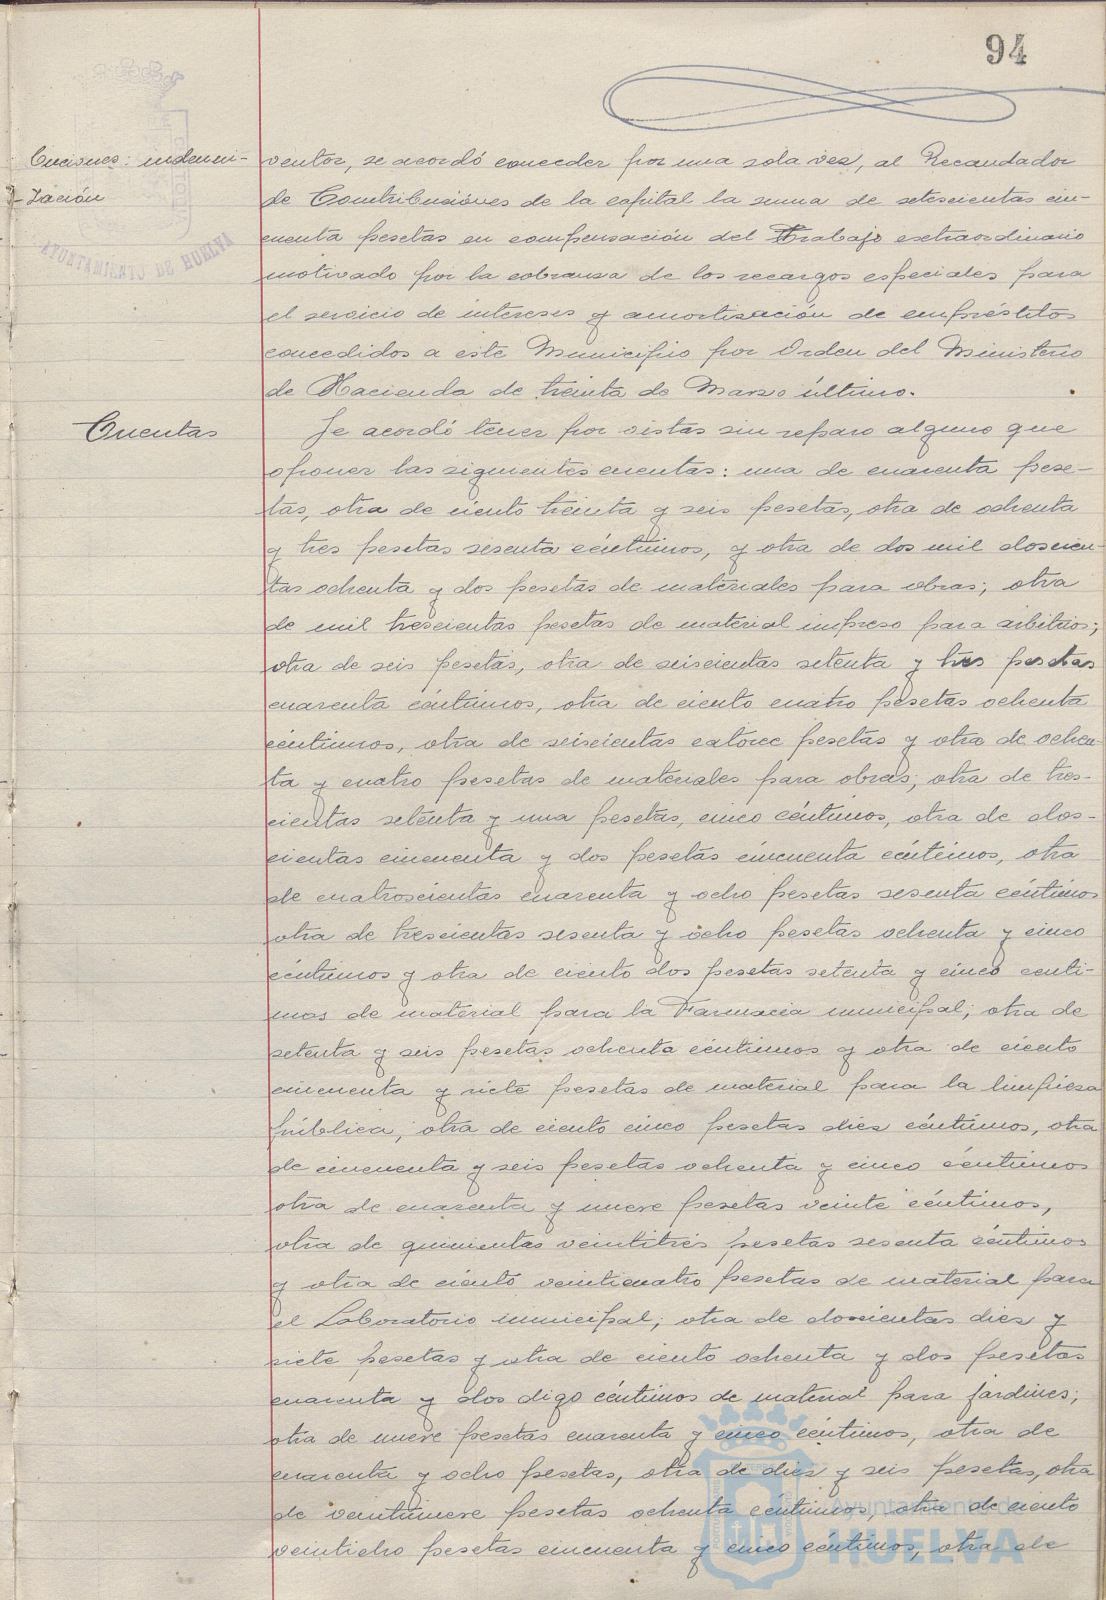 94
AYUNTAMIENTO DE HUELVA
buciones: indemni-
zación
ventor, se acordó conceder por una sola vez, al Recaudador
de Contribuciónes de la capital la suma de setescientas cin-
cuenta pesetas en compensación del Trabajo extraordinario
motivado por la cobranza de los recargos especiales para
el servicio de intereses y amortización de empréstitos
concedidos a este Municipio por Orden del Ministerio
de Hacienda de treinta de Marzo último.
Cuentas
Se acordó tener por vistas sin reparo alguno que
oponer las siguientes cuentas: una de cuarenta pese-
tas, otra de ciento treinta y seis pesetas, otra de ochenta
y tres pesetas sesenta céntimos, y otra de dos mil doscien-
tas ochenta y dos pesetas de materiales para obras; otra
de mil trescientas pesetas de material impreso para arbitrios;
otra de seis pesetas, otra de seiscientas setenta y tres pesetas
cuarenta céntimos, otra de ciento cuatro pesetas ochenta
céntimos, otra de seiscientas catorce pesetas y otra de ochen-
ta y cuatro pesetas de materiales para obras; otra de tres-
cientas setenta y una pesetas, cinco céntimos, otra de dos-
cientas cincuenta y dos pesetas cincuenta céntimos, otra
de cuatroscientas cuarenta y ocho pesetas sesenta céntimos
otra de trescientas sesenta y ocho pesetas ochenta y cinco
céntimos y otra de ciento dos pesetas setenta y cinco centi-
mos de material para la Farmacia municipal; otra de
setenta y seis pesetas ochenta céntimos y otra de ciento
cincuenta y siete pesetas de material para la limpieza
pública; otra de ciento cinco pesetas diez céntimos, otra
de cincuenta y seis pesetas ochenta y cinco céntimos
otra de cuarenta y nueve pesetas veinte céntimos,
otra de quinientas veintitrés pesetas sesenta céntimos
y otra de ciento veinticuatro pesetas de material para
el Laboratorio municipal; otra de doscientas diez y
siete pesetas y otra de ciento ochenta y dos pesetas
cuarenta y dos digo céntimos de material para jardines;
otra de nueve pesetas cuarenta y cinco céntimos, otra de
cuarenta y ocho pesetas, otra de diez y seis pesetas, otra
de veintinueve pesetas ochenta céntimos, otra de ciento
veintiocho pesetas cincuenta y cinco centimos, otra de
Ayuntamiento de
HUELVA